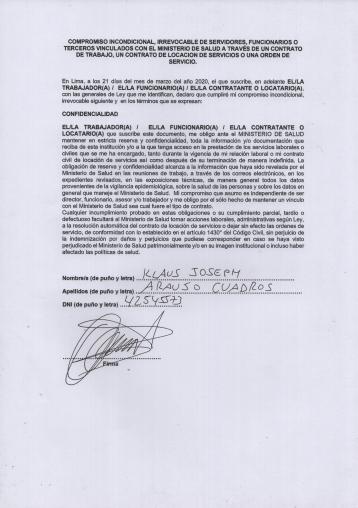 COMPROMISO INCONDICIONAL, IRREVOCABLE DE SERVIDORES, FUNCIONARIOS O
TERCEROS VINCULADOS CON EL MINISTERIO DE SALUD A TRAVÉS DE UN CONTRATO
DE TRABAJO, UN CONTRATO DE LOCACION DE SERVICIOS O UNA ORDEN DE
SERVICIO.
En Lima, a los 21 días del mes de marzo del año 2020, el que suscribe, en adelante EL/LA
TRABAJADOR(A) / EL/LA FUNCIONARIO(A) / EL/LA CONTRATANTE O LOCATARIO(A),
con las generales de Ley que me identifican, declaro que cumpliré mi compromiso incondicional,
irrevocable siguiente y en los términos que se expresan:
CONFIDENCIALIDAD
EL/LA TRABAJADOR(A) / EL/LA FUNCIONARIO(A) / EL/LA CONTRATANTE O
LOCATARIO(A) que suscribe este documento, me obligo ante el MINISTERIO DE SALUD a
mantener en estricta reserva y confidencialidad, toda la información y/o documentación que
reciba de esta institución y/o a la que tenga acceso en la prestación de los servicios laborales o
civiles que se me ha encargado, tanto durante la vigencia de mi relación laboral o mi contrato
civil de locación de servicios así como después de su terminación de manera indefinida. Le
obligación de reserva y confidencialidad alcanza a la información que haya sido revelada por el
Ministerio de Salud en las reuniones de trabajo, a través de los correos electrónicos, en los
expedientes revisados, en las exposiciones técnicas, de manera general todos los datos
provenientes de la vigilancia epidemiológica, sobre la salud de las personas y sobre los datos en
general que maneje el Ministerio de Salud. Mi compromiso que asumo es independiente de ser
director, funcionario, asesor y/o trabajador y me obligo por el sólo hecho de mantener un vínculo
con el Ministerio de Salud sea cual fuere el tipo de contrato.
Cualquier incumplimiento probado en estas obligaciones o su cumplimiento parcial, tardío o
defectuoso facultará al Ministerio de Salud tomar acciones laborales, administrativas según Ley,
a la resolución automática del contrato de locación de servicios o dejar sin efecto las ordenes
de servicio, de conformidad con lo establecido en el artículo 1430° del Código Civil, sin perjuicio de
la indemnización por daños y perjuicios que pudiese corresponder en caso se haya visto
perjudicado el Ministerio de Salud patrimonialmente y/o en su imagen institucional o incluso haber
afectado las políticas de salud.
Nombre/s (de puño y letra) KLAUS JOSEPH
Apellidos (de puño y letra) ARAUSO CUADROS
DNI (de puño y letra) 42545573
Firma